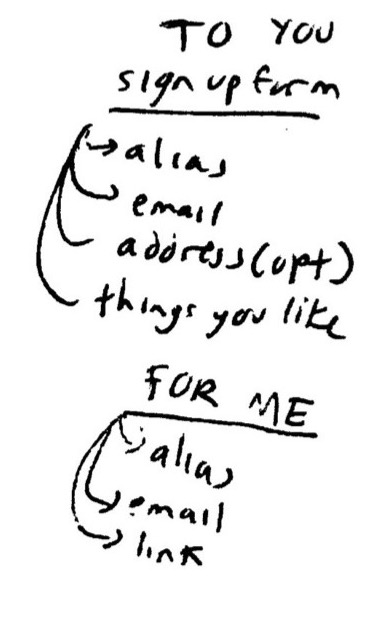 TO YOU
sign up form
alias
email
address (opt)
things you like
FOR ME
alias
email
link